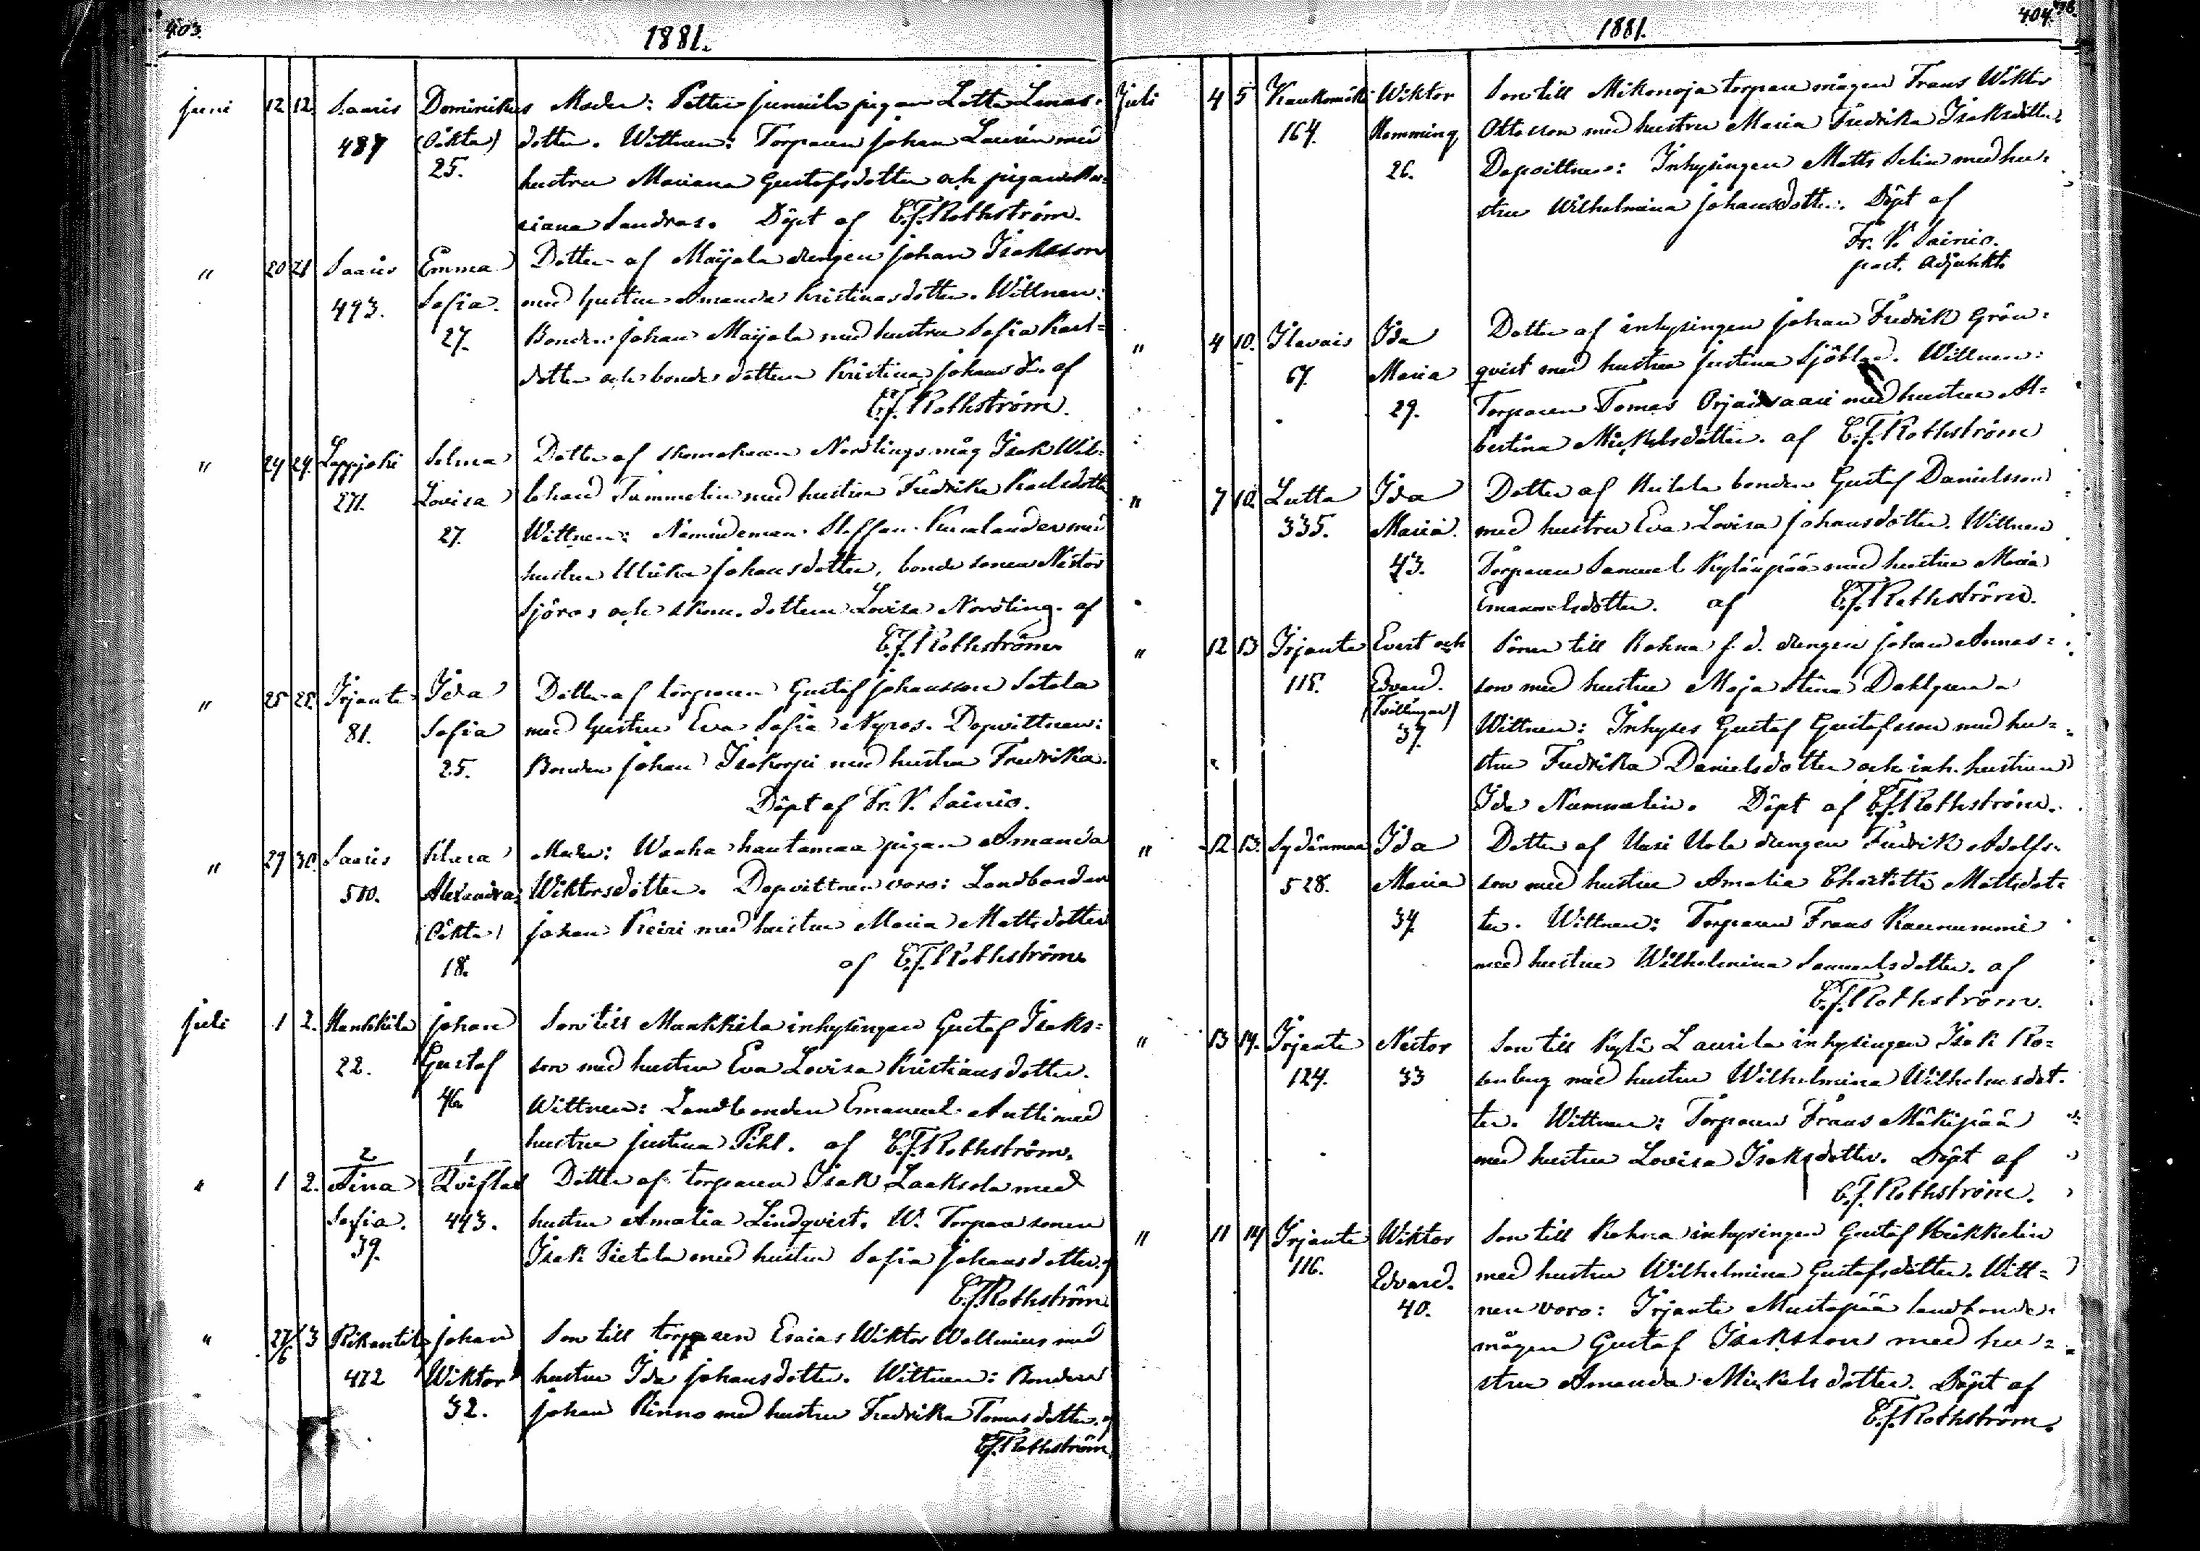 403.
1881.
juni 12 12. Saaris Dominikus Moder: Petter Junnila pigan Lotta Linas-
487 (Oäkta) dotter. Wittnen: Torparen Johan Laurén med
25. hustru Mariana Gustafsdotter och pigan Ma-
riana Sandras. Döpt af C.J. Rothström.
" 20 21 Saaris Emma Dotter af Maijala drengen Johan Isaksson
493. Sofia. med hustru Amanda Kristinasdotter. Wittnen:
27. Bonden Johan Maijala med hustru Sofia Karl-
dotter och bonde dottern Kristina Johansdr. af
C.J. Rothström.
" 24 29. Lappjoki Selma Dotter af skomakaren Nordlings måg Isak Wil-
271. Lovisa lehard Tammelin med hustru Fredrika Karlsdotter
27. Wittnen: Nämndeman Staffan Kumlander med
hustru Ulrika Johansdotter, bonde sonen Nestor
Sjöros och skom. dottern Lovisa Nordling. af
C.J. Rothström
" 25 28. Irjante Ida Dotter af torparen Gustaf Johansson Setala
81. Sofia med hustru Eva Sofia Nyros. Dopvittnen:
25. Bonden Johan Isokorpi med hustru Fredrika.
Döpt af Fr. V. Sainio.
" 29 30. Saaris Klara Moder: Waaha hautamaa pigan Amanda
510. Alexandra Wiktorsdotter. Dopvittnen voro: Landbonden
(Oäkta) Johan Keiri med hustru Maria Mattsdotter
18. af C.J. Rothström
juli 1 2. Mankkila Johan Son till Mankkila inhysingen Gustaf Isaks-
22. Gustaf son med hustru Eva Lovisa Kristiansdotter.
46. Wittnen: Landbonden Emanuel Antti med
hustru Justina Pihl. af C.J. Rothström.
2 1
" 1 2. Fina Qviflax Dotter af torparen Isak Laaksola med
Sofia. 443. hustru Amalia Lindqvist. W. Torpare sonen
39. Isak Sietala med hustru Sofia Johansdotter. af
C.J. Rothström
" 27/6 3 Pikantila Johan Son till torparen Esaias Wiktor Wallenius med
472 Wiktor hustru Ida Johansdotter. Wittnen: Bonden
32. Johan Rinno med hustru Fredrika Tomasdotter. af
C.J. Rothström
404.
1881.
Juli 4 5 Kaukomäki Wiktor Son till Mikonoja torpare mågen Frans Wiktor
164. Hemming Ottosson med hustru Maria Fredrika Isaksdotter
26. Dopvittnen: Inhysingen Matts Selin med hu-
stru Wilhelmina Johansdotter. Döpt af
Fr. V. Sainio.
past. adjunkt.
" 4 10. Ilavais Ida Dotter af inhysingen Johan Fredrik Grön-
67. Maria qvist med hustru Justina Sjöblad. Wittnen:
29. Torparen Tomas Orjansaari med hustru Al-
bertina Mickelsdotter. af C.J. Rothström
" 7 10. Lutta Ida Dotter af Keilala bonden Gustaf Danielsson
335. Maria. med hustru Eva Lovisa Johansdotter. Wittnen
43. Torparen Samuel Kylänpää med hustru Maria
Emanuelsdotter. af C.J. Rothström.
" 12 13 Irjante Evert och Söner till Rohna f. d. drengen Johan Annas-
115. Edvard. son med hustru Maja Stina Dahlgren
(Tvillingar) Wittnen: Inhyses Gustaf Gustafsson med hu-
37. stru Fredrika Danielsdotter och inh. hustrun
Ida Nummelin. Döpt af C.J. Rothström.
" 12 13. Sydänmaa Ida Dotter af Uusi Uola drengen Fredrik Adolfs-
528. Maria son med hustru Amalia Charlotta Mattsdot-
37 ter. Wittnen: Torparen Frans Raununmi
med hustru Wilhelmina Samuelsdotter. af
C.J. Rothström.
" 13 14. Irjante Nestor Son till Kylä Laurila inhysingen Isak Ro-
124. 33 senberg med hustru Wilhelmina Wilhelmsdot-
ter. Wittnen: Torparen Frans Mäkipää
med hustru Lovisa Isaksdotter. Döpt af
C.J. Rothström.
" 11 14 Irjante Wiktor Son till Rohna inhysingen Gustaf Heikkelin
116. Edvard. med hustru Wilhelmina Gustafsdotter. Witt-
40. nen voro: Irjante Mustapää landbonde-
mågen Gustaf Isaksson med hu-
stru Amanda Mickelsdotter. Döpt af
C.J. Rothström.